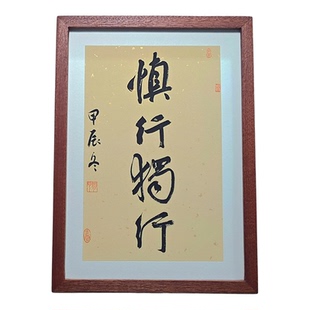 慎行獨行
甲辰冬